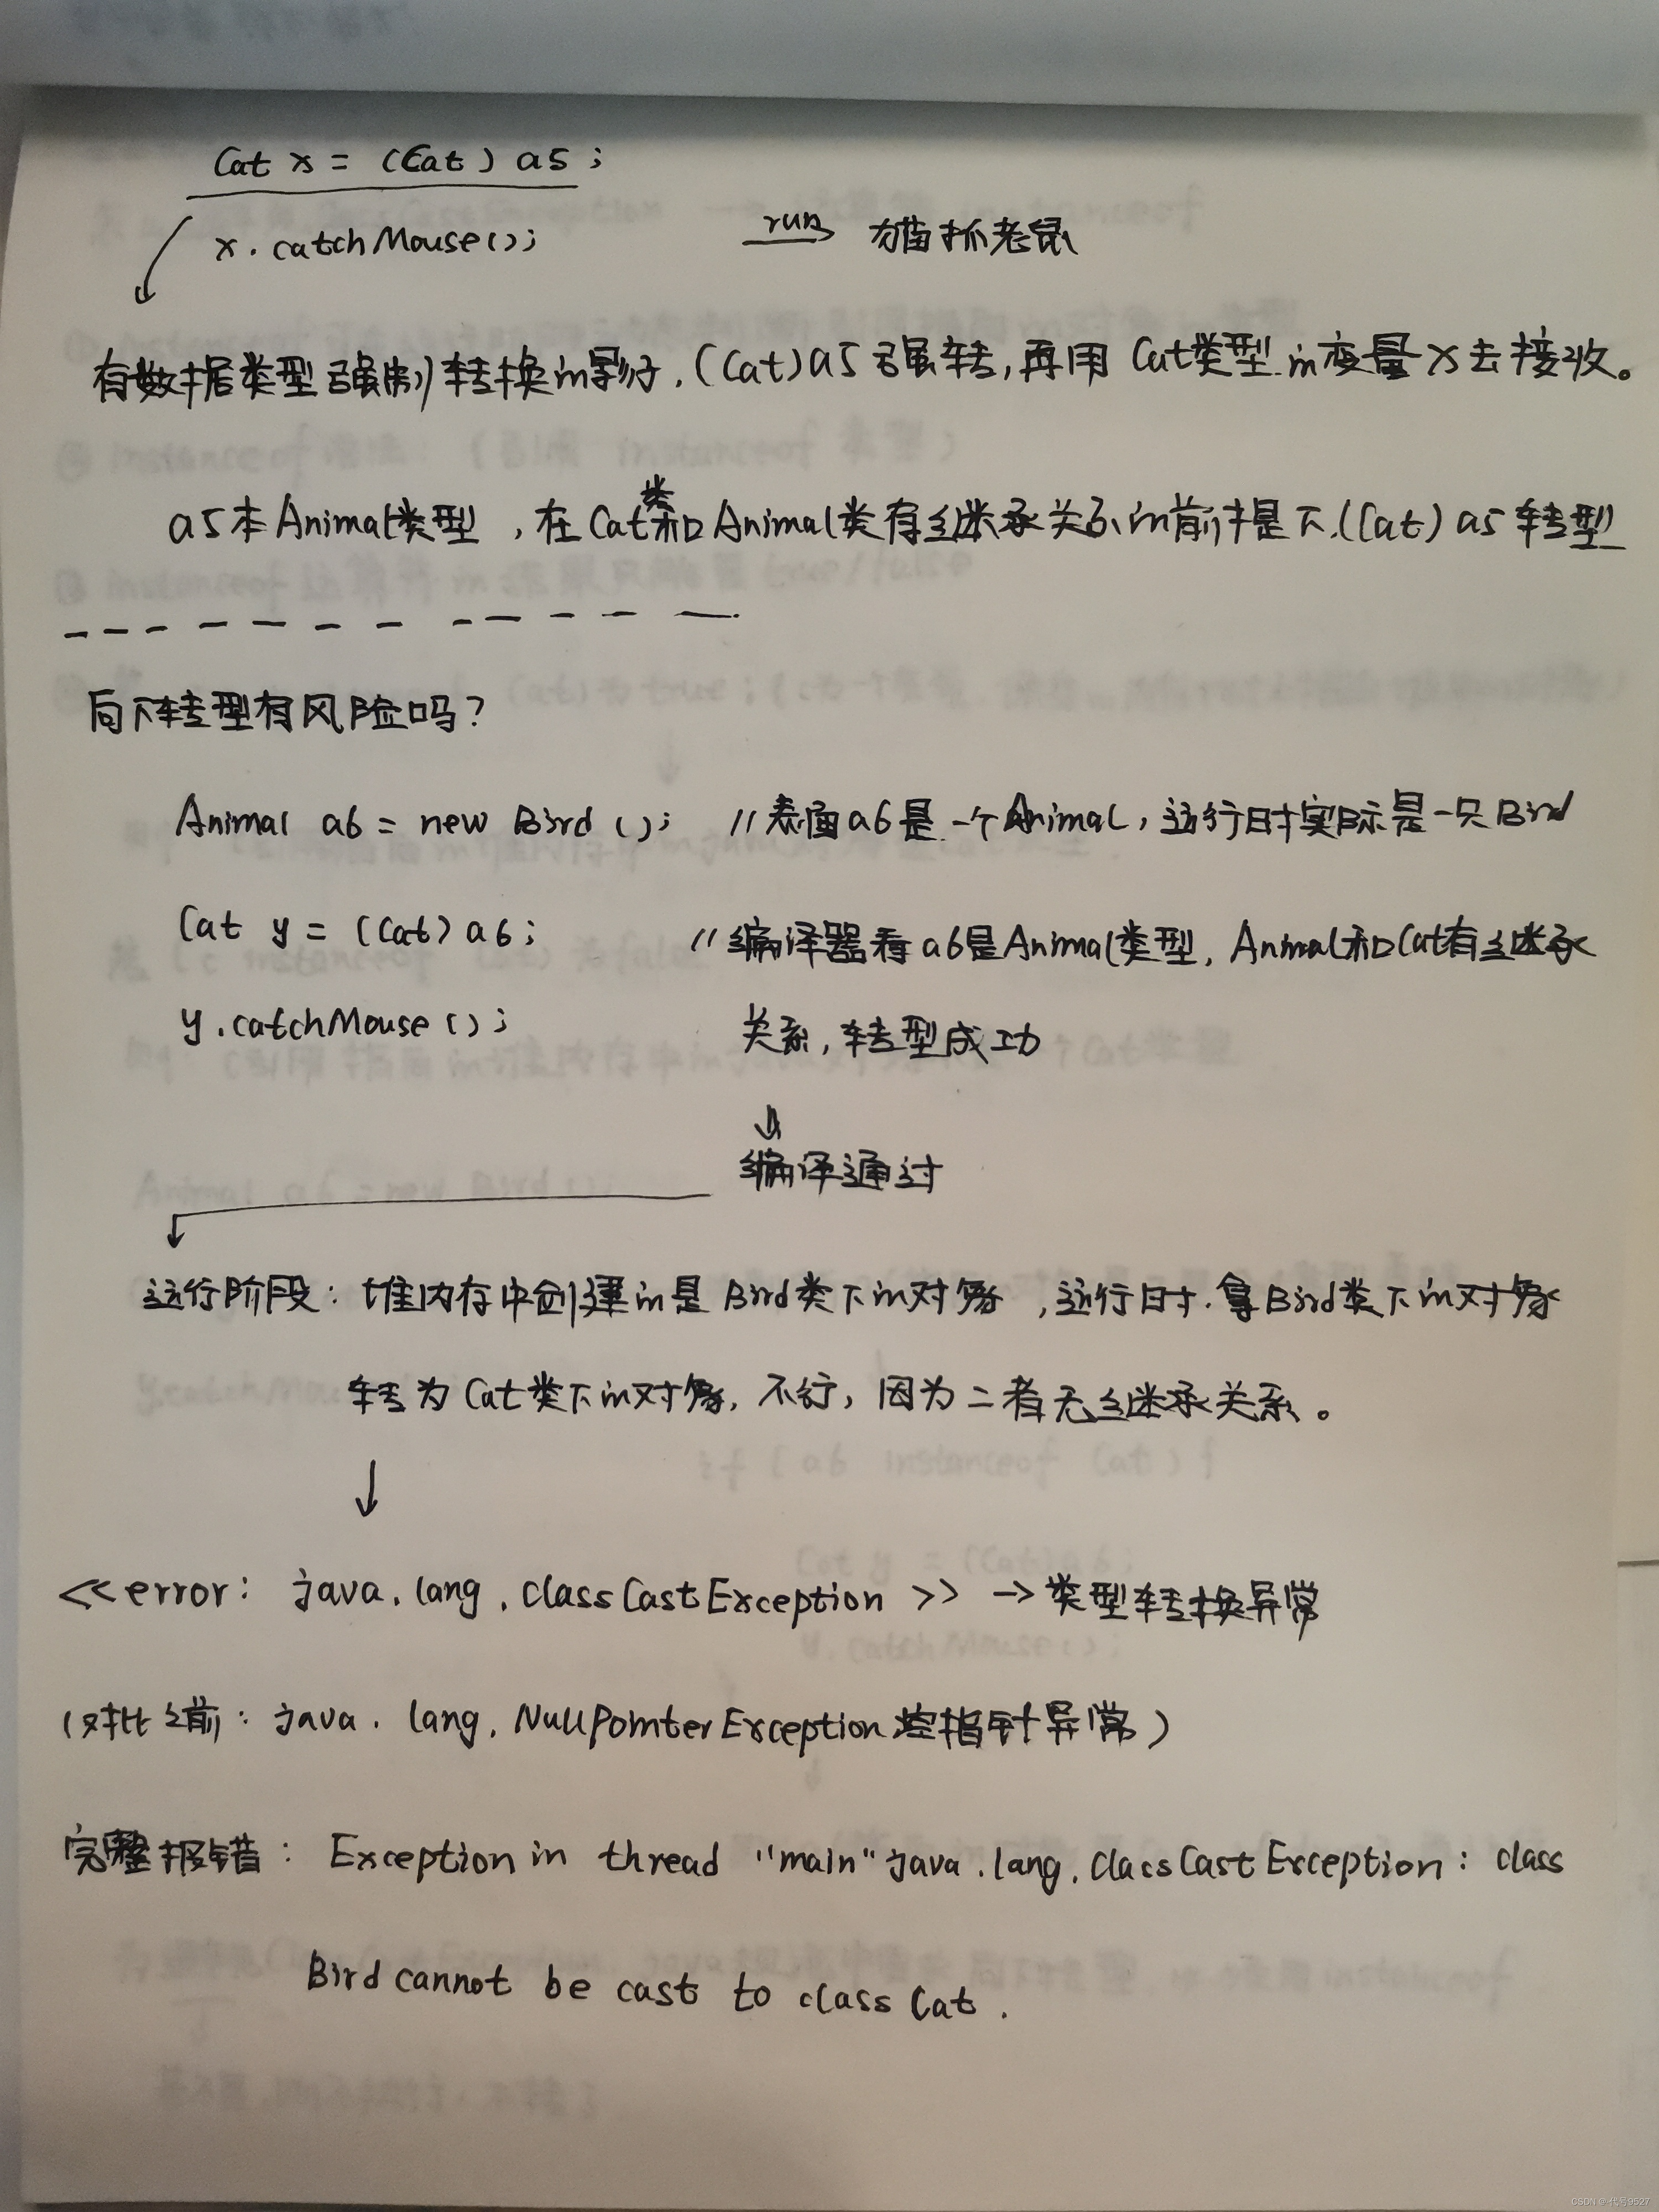 Cat x = (Cat) a5;
x.catchMouse(); run 猫抓老鼠
有数据类型强制转换的影子,(Cat)a5强转,再用Cat类型的变量x去接收。
a5本Animal类型,在Cat类和Animal类有继承关系的前提下,(Cat)a5转型
向下转型有风险吗?
Animal a6 = new Bird(); //表面a6是一个Animal,运行时实际是一只Bird
Cat y = (Cat)a6; //编译器看a6是Animal类型,Animal和Cat有继承
y.catchMouse(); 关系,转型成功
编译通过
运行阶段:堆内存中创建的是Bird类下的对象,运行时.拿Bird类下的对象
转为Cat类下的对象,不行,因为二者无继承关系。
<<error: java.lang.classCastException >> →类型转换异常
(对比之前:java.lang.NullPointerException空指针异常)
完整报错: Exception in thread "main" java.lang.ClassCastException: class
Bird cannot be cast to class Cat.
CSDN @代号9527